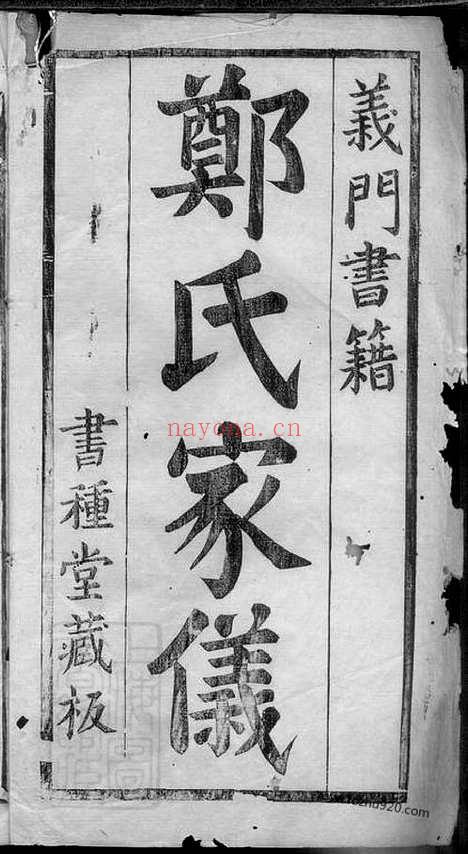 義門書籍
鄭氏家儀
書種堂藏板
nayona.cn